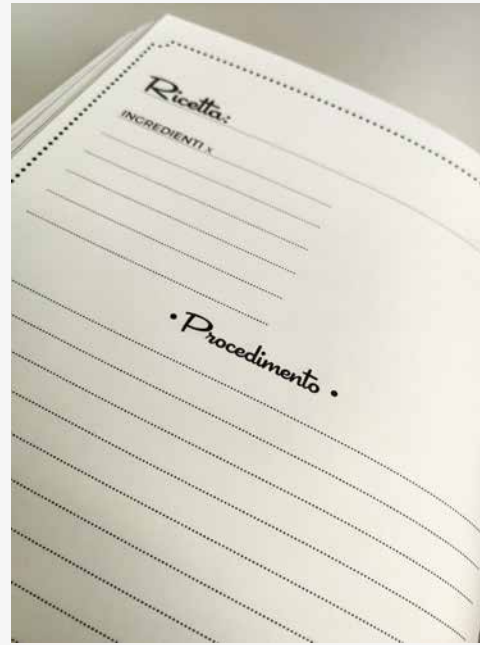 Ricetta:
INGREDIENTI x
• Procedimento •